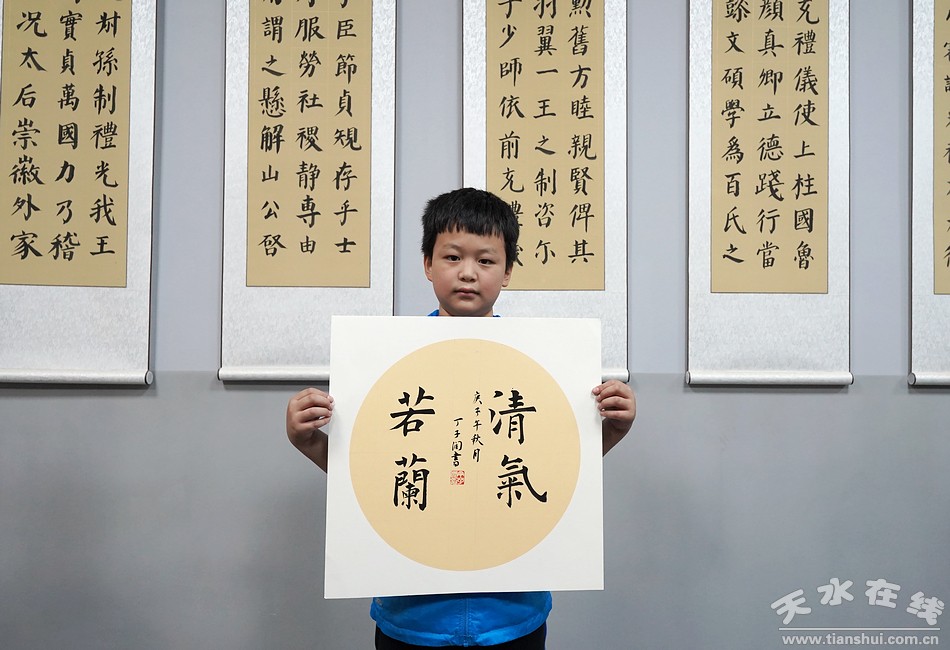 充禮儀使上柱國魯
顔真卿立德踐行當
懿文碩學爲百氏之
勲舊方睦親賢俾其
羽翼一王之制咨尔
子少師依前充禮儀
乎臣節貞規存乎士
服勞社稷静專由
謂之懸解山公啓
叔孫制禮光我王
實貞萬國力乃稽
況太后崇徽外家
清氣
若蘭
庚子年秋月
丁子閏書
天水在线
www.tianshui.com.cn